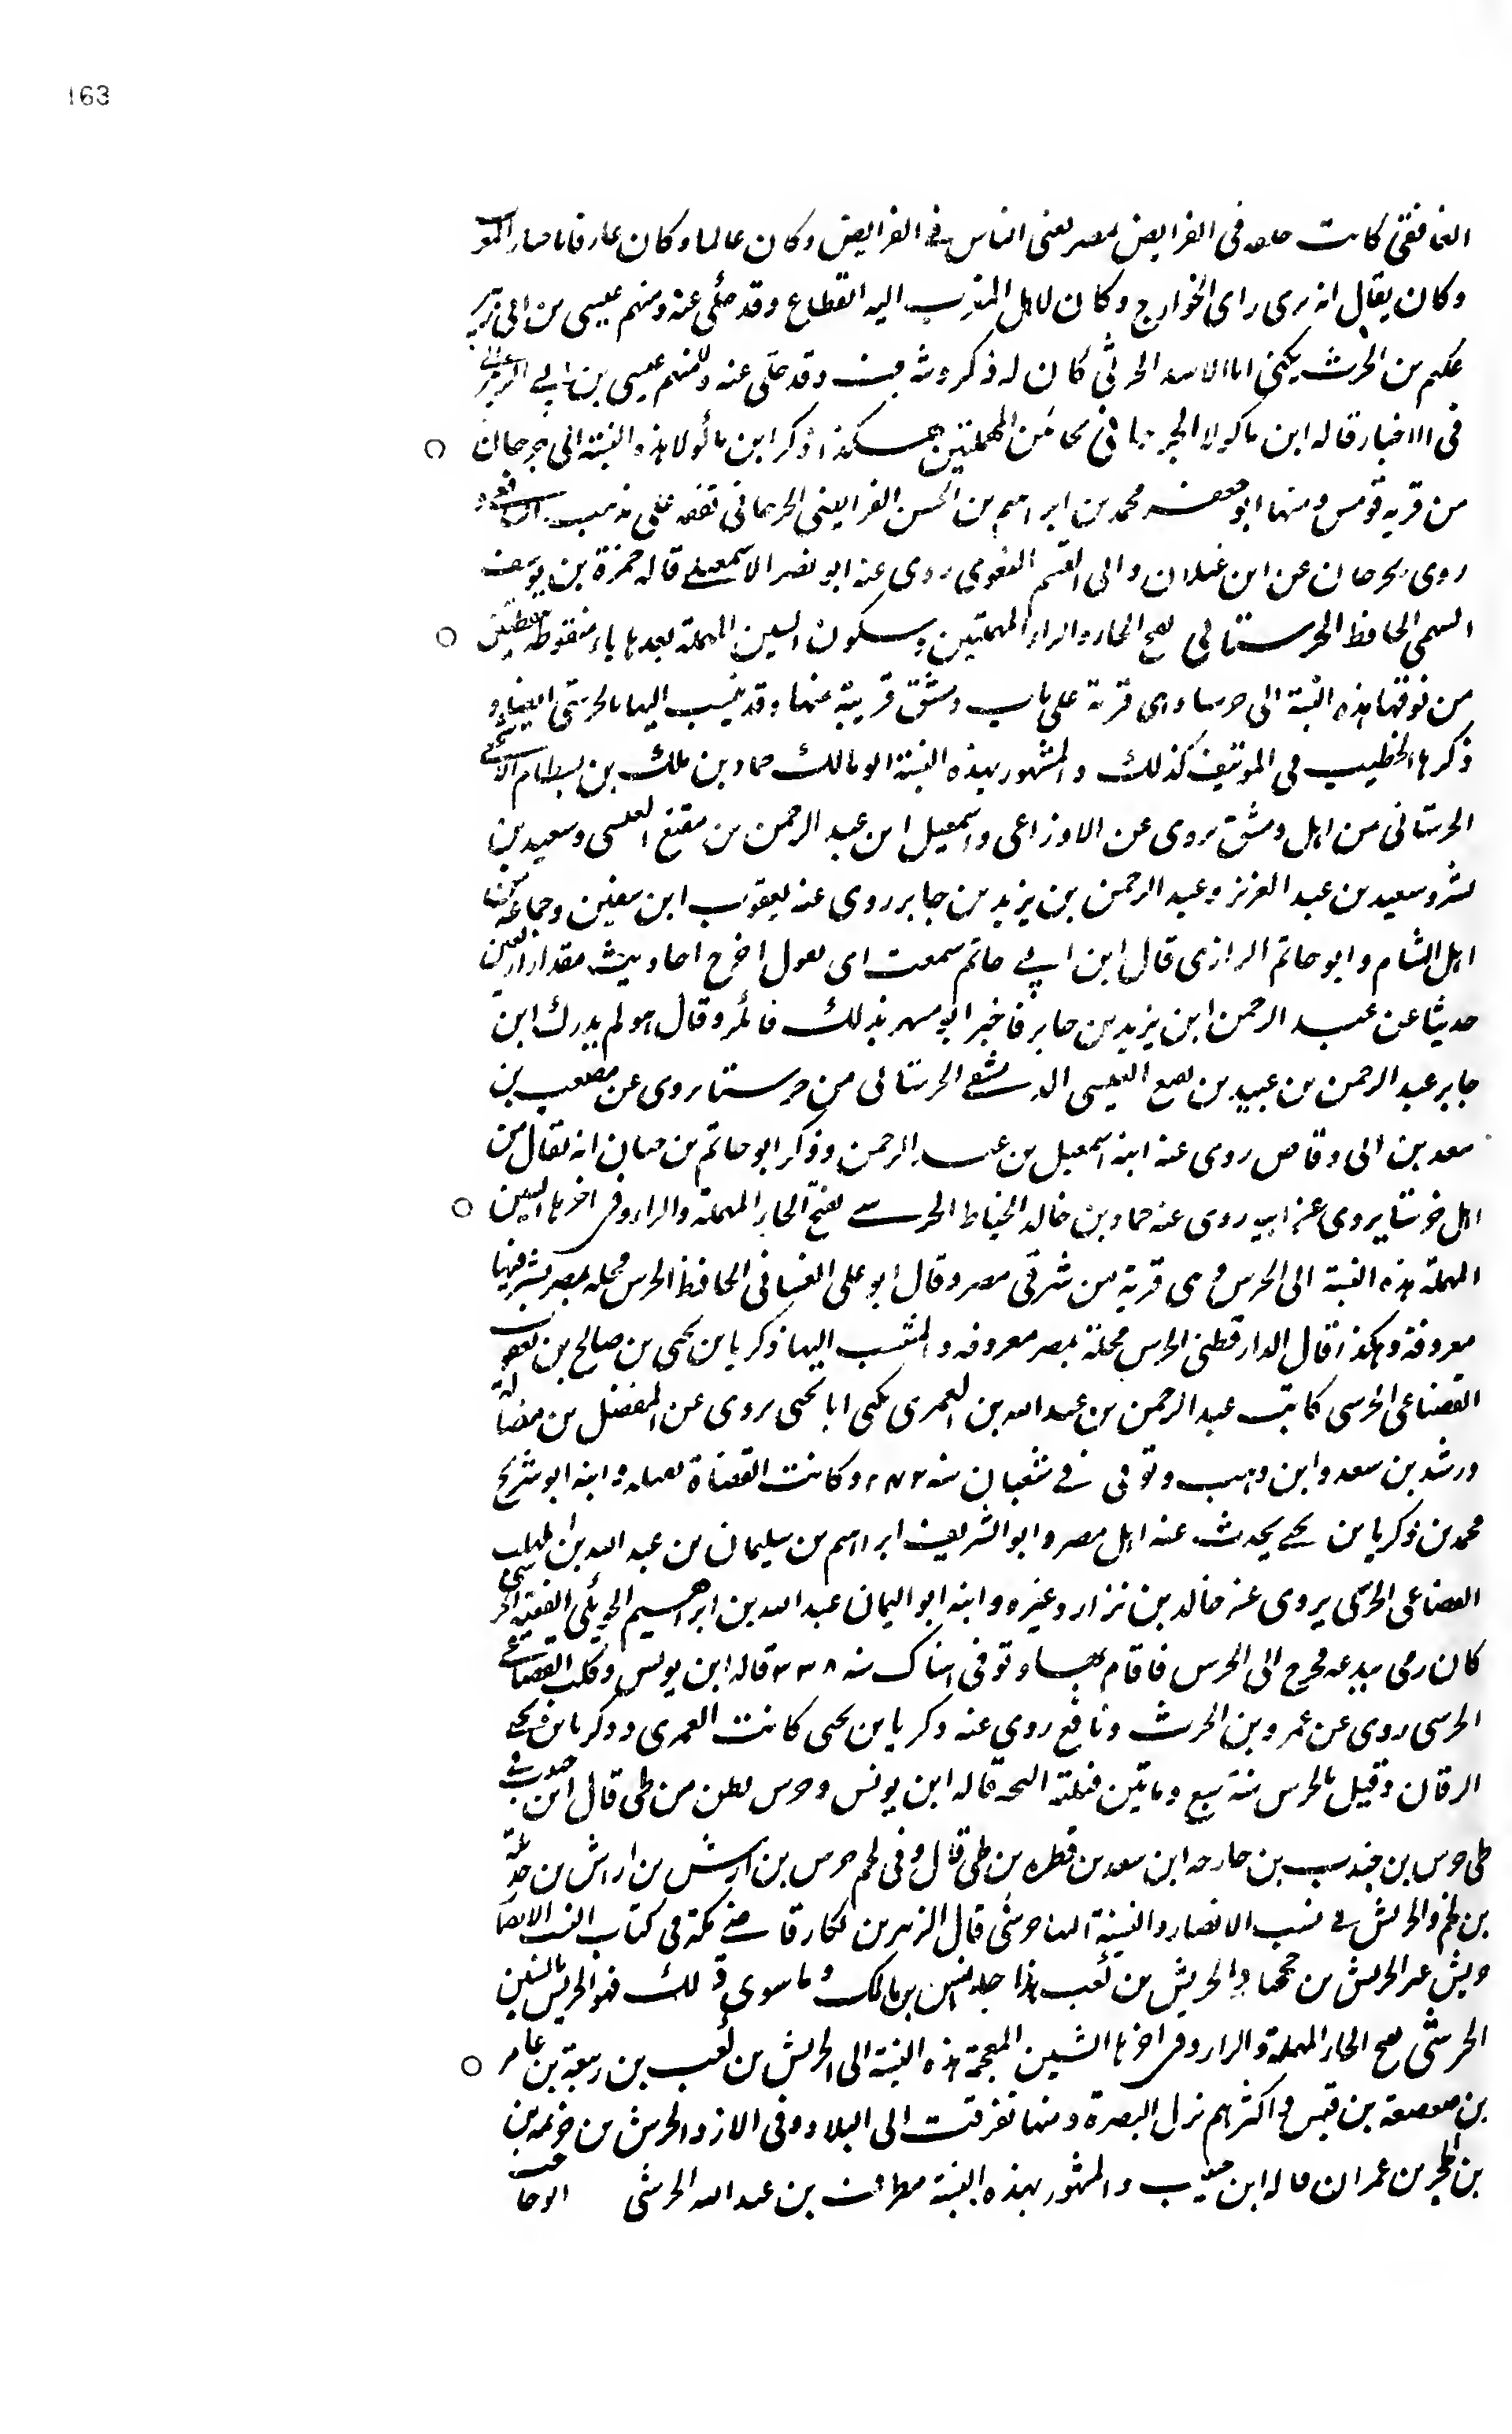 163
الغافقى كانت حلقه فى الفرايض بمصر لغى الناس فى الفرايض وكان عالما وكان عارفا باخبار المغرب
وكان يقال انه يرى راى الخوارج وكان لاهل المغرب اليه انقطاع وقد حكى عنه ومنهم عيسى بن ابى
حكيم بن الحرث يكنى ابا الاسد الحرثى كان له ذكر وشرف وقد حكى عنه ومنهم عيسى بن ابى
فى الاخبار قاله ابن ماكولا الحرجانى بحائين المهملتين هكذا ذكر ابن ماكولا هذه النسبة الى حرجان ○
من قريه قومس ومنها ابو جعفر محمد بن ابراهيم بن الحسن الفرايضى الحرجانى تفقه على مذهب الشافعى و
روى بحرجان عن ابن غيلان وابى القسم البغوى روى عنه ابو نصر الاسمعيلى قاله حمزة بن يوسف
السهمى الحافظ الحرستانى بفتح الحاء والراء المهملتين وسكون السين المهملة بعدها ياء منقوطه بنقطتين ○
من فوقها هذه النسبة الى حرستا وهى قرية على باب دمشق قريبة منها وقد ينسب اليها بالحرستى ايضا و
ذكرها الخطيب فى الموتنف كذلك والمشهور بهذه النسبة ابو مالك حماد بن ملك بن بسطام الاشجعى
الحرستانى من اهل دمشق يروى عن الاوزاعى واسمعيل ابن عبد الرحمن بن مقنع العنسى وسعيد بن
بشر وسعيد بن عبد العزيز وعبد الرحمن بن يزيد بن جابر روى عنه يعقوب ابن سفين وجماعة من
اهل الشام وابو حاتم الرازى قال ابن ابى حاتم سمعت ابى يقول اخرج احاديث مقدار اربعين
حديثا عن عبد الرحمن ابن يزيد بن جابر فاخبر ابو مسهر بذلك فانكر وقال هو لم يدرك ابن
جابر عبد الرحمن بن عبيد بن نفيع العنسى الدمشقى الحرستانى من حرستا يروى عن مصعب بن
سعد بن ابى وقاص روى عنه ابنه اسمعيل بن عبد الرحمن وذكر ابو حاتم بن حبان انه يقال من
اهل حرستا يروى عن ابيه روى عنه حماد بن خالد الخياط الحرسى بفتح الحاء المهملة والراء وفى اخرها السين ○
المهملة هذه النسبة الى الحرس وهى قرية من شرقى مصر وقال ابو على الغسانى الحافظ الحرس محله بمصر بشرقيها
معروفة وهكذا قال الدارقطنى الحرس محلة بمصر معروفه والمنتسب اليها زكريا بن يحيى بن صالح بن يعقوب
القضاعى الحرسى كاتب عبد الرحمن بن عبد الله بن العمرى يكنى ابا يحيى يروى عن المفضل بن فضالة
ورشد بن سعد وابن وهب وتوفى فى شعبان سنه ٢٤٢ وكانت القضاة تقبله وابنه ابو شريح
محمد بن زكريا بن يحيى يحدث عنه اهل مصر وابو الشريف ابراهيم بن سليمان بن عبد الله بن المهلب
القضاعى الحرسى يروى عنه خالد بن نزار وغيره وابنه ابو اليمان عبد الله بن ابراهيم الفقيه الحرسى
كان رمى ببدعه فخرج الى الحرس فاقام بها وتوفى هناك سنه ٣٣٨ قاله ابن يونس القضاعى
الحرسى روى عن عمرو بن الحرث ونافع روى عنه زكريا بن يحيى كاتب العمرى وزكريا بن يحيى
الرقان وقيل بالحرس سنة سبع ومائتين قتلته البجه قاله ابن يونس وحرس بطن من طى قال ابن حبيب فى
طى حرس بن جندب بن خارجه ابن سعد بن فطره بن طى قال وفى لخم حرس بن اريش بن اراش بن جزيلة
بن لخم والحريش فى نسب الانصار والنسبة اليها حرشى قال الزبير بن بكار قاضى مكة فى كتاب النسب الانصار
حريش غير الحريش بن جحجبا والحريش بن كعب هذا جد انس بن مالك وما سوى ذلك فهو الحريس بالسين
الحرشى بفتح الحاء المهملة والراء وفى اخرها الشين المعجمة هذه النسبة الى الحريش بن كعب بن ربيعة بن عامر ○
بن صعصعة بن قيس و اكثرهم نزل البصرة ومنها تفرقت الى البلاد وفى الازد الحريش بن خزيمه بن
بن الحجر بن عمران قاله ابن حبيب والمشهور بهذه النسبة مطرف بن عبد الله الحرشى